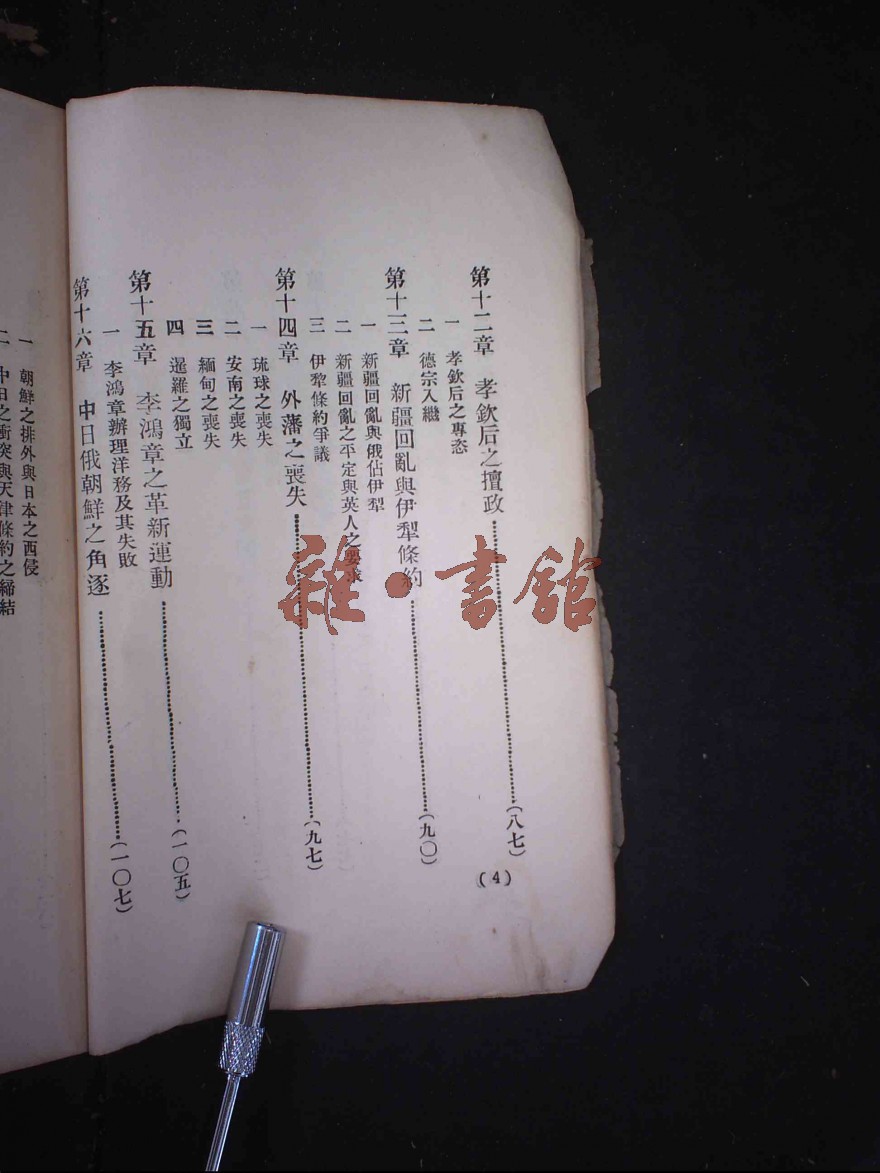 第十二章 孝欽后之擅政……(八七)
一 孝欽后之專恣
二 德宗入繼
第十三章 新疆回亂與伊犂條約……(九〇)
一 新疆回亂與俄佔伊犂
二 新疆回亂之平定與英人之要求
三 伊犂條約爭議
第十四章 外藩之喪失……(九七)
一 琉球之喪失
二 安南之喪失
三 緬甸之喪失
四 暹羅之獨立
第十五章 李鴻章之革新運動……(一〇五)
一 李鴻章辦理洋務及其失敗
第十六章 中日俄朝鮮之角逐……(一〇七)
(4)
一 朝鮮之排外與日本之西侵
二 中日之衝突與天津條約之締結
雜·書館